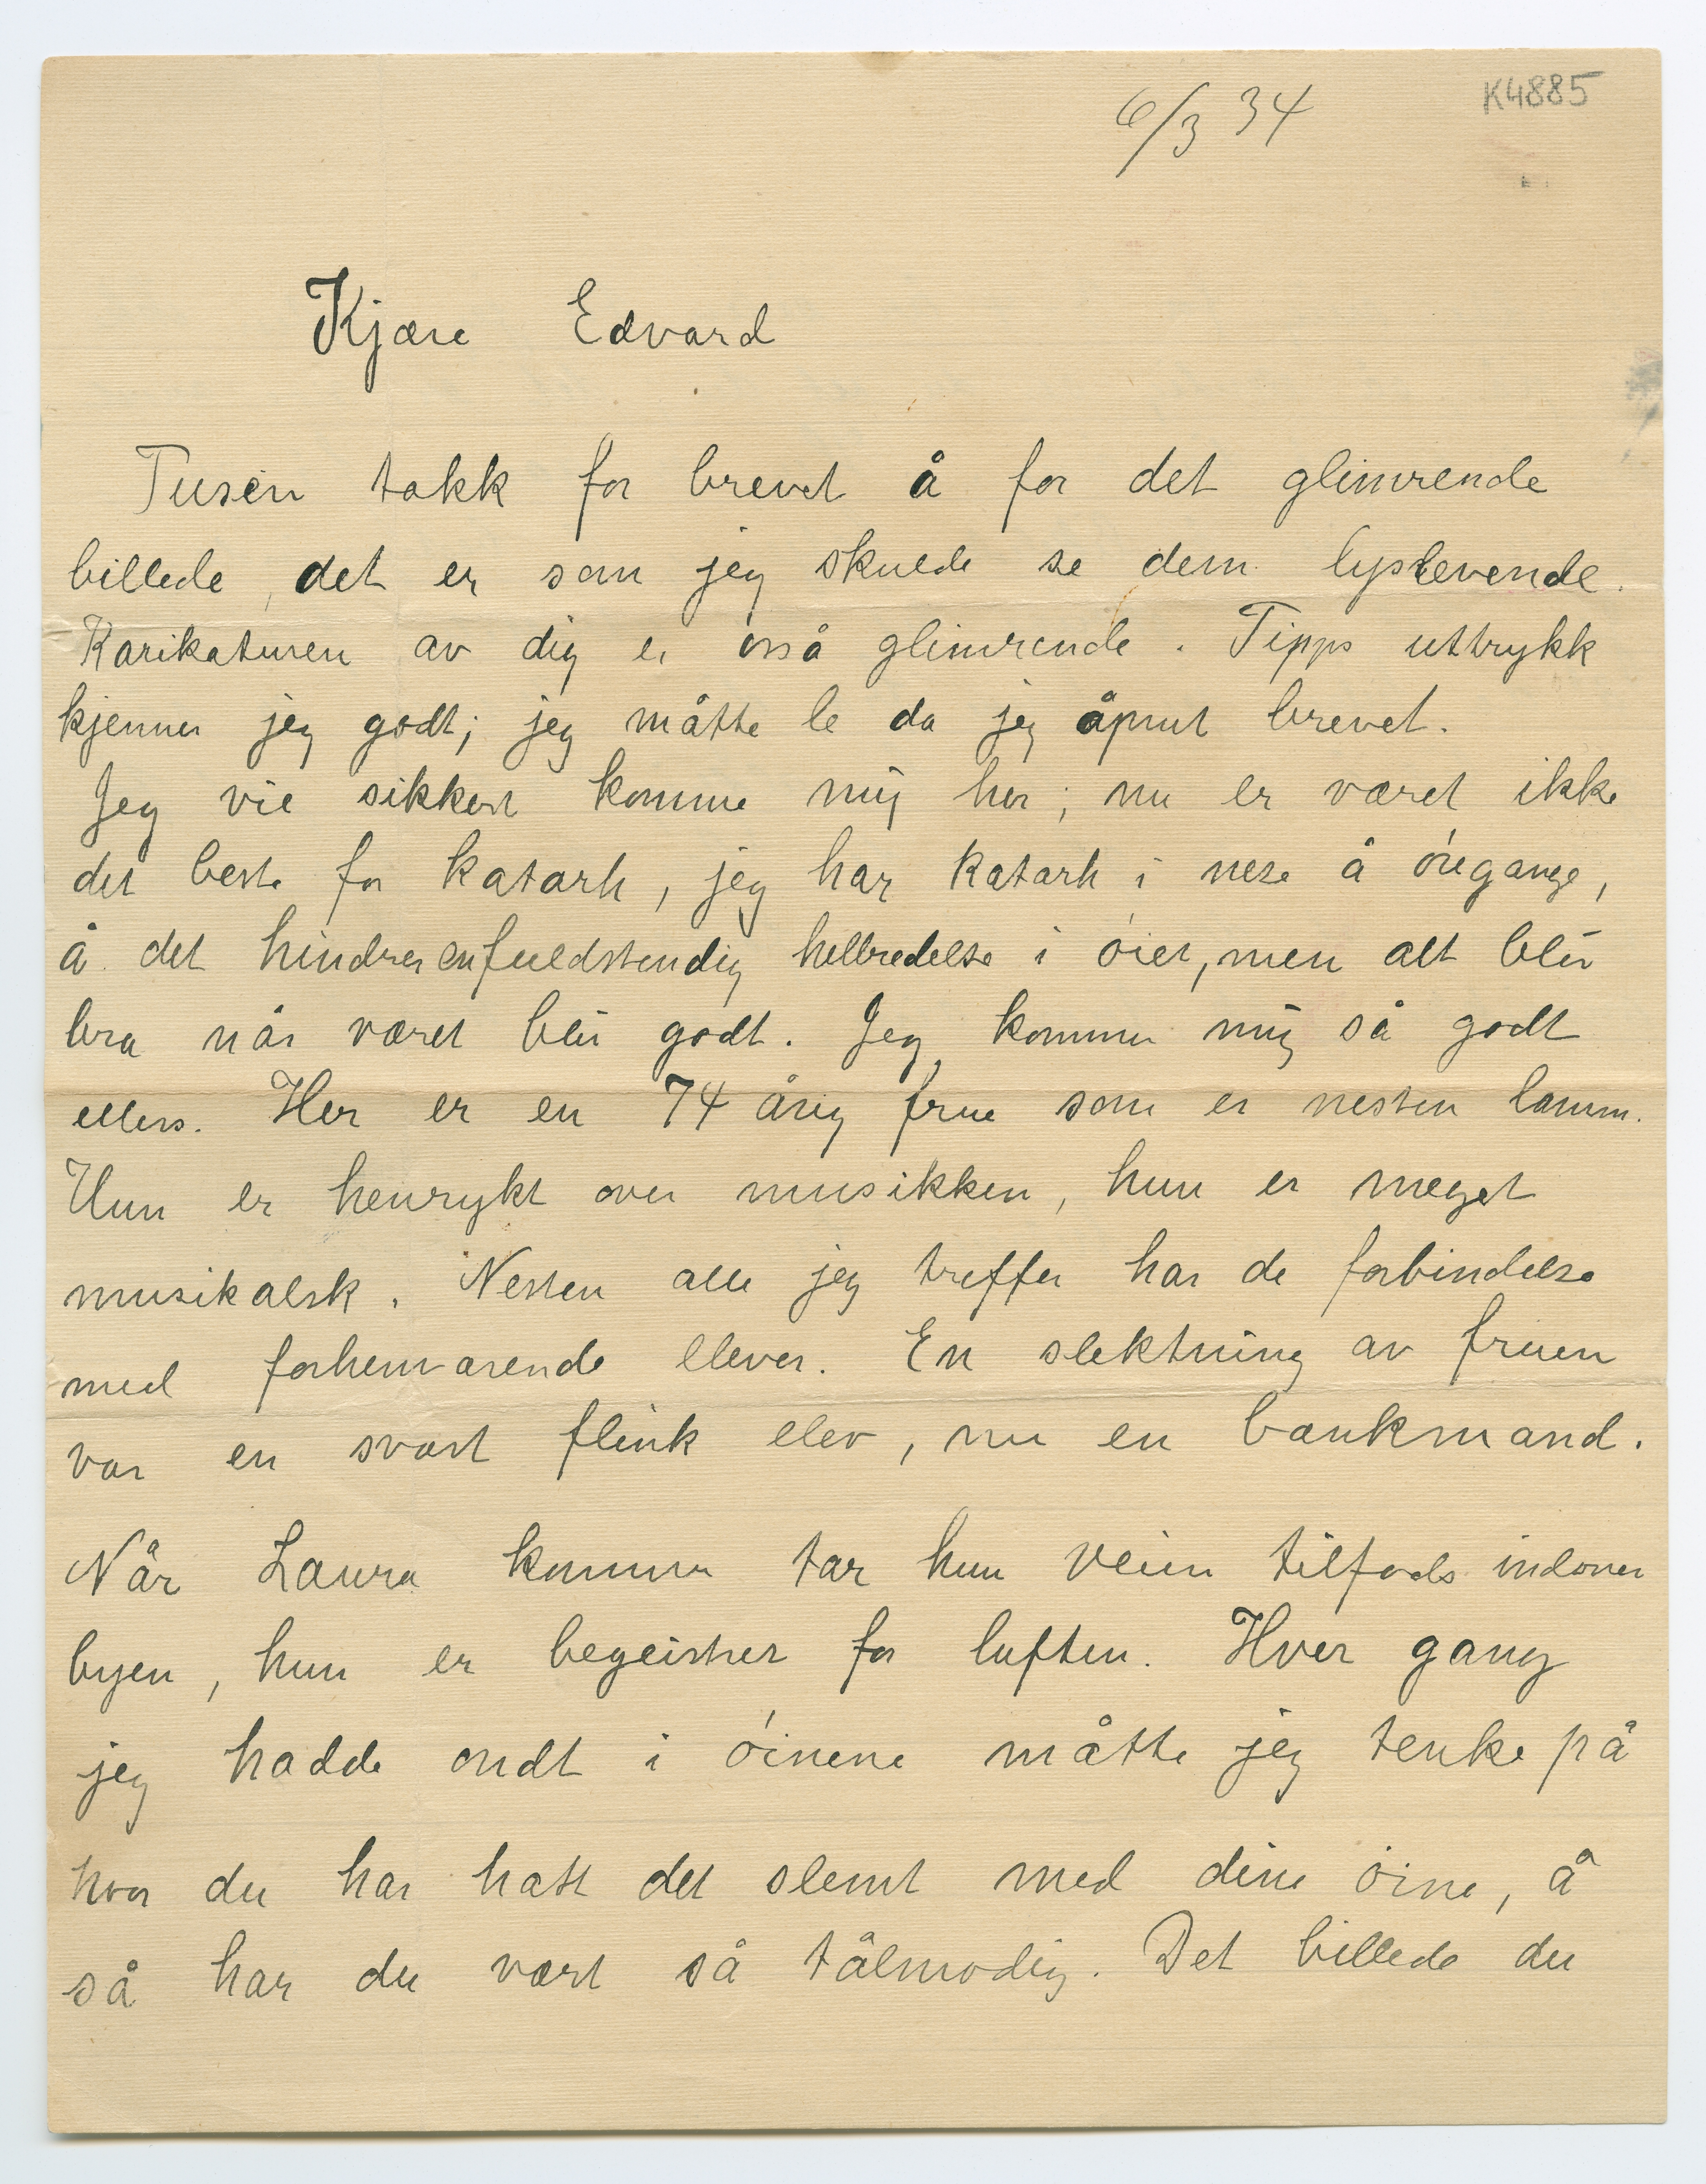 K4885
6/3 34
Kjære Edvard
Tusen takk for brevet å for det glimrende
billede, det er som jeg skulde se dem lyslevende.
Karikaturen av dig er osså glimrende. Tipps uttrykk
kjenner jeg godt; jeg måtte le da jeg åpnet brevet.
Jeg vil sikkert komme mig her; nu er været ikke
det beste for katarh, jeg har katarh i nese å óregange,
å det hindrer en fuldstendig helbredelse i óiet, men alt blir
bra når været blir godt. Jeg kommer mig så godt
ellers. Her er en 74 årig frue som er nesten lamm.
Hun er henrykt over musikken, hun er meget
musikalsk. Nesten alle jeg treffer har de forbindelse
med forhenværende elever. En slektning av fruen
var en svært flink elev, nu en bankmand.
Når Laura kommer tar hun veien tilfods indover
byen, hun er begeistret for luften. Hver gang
jeg hadde ondt i óinene måtte jeg tenke på
hvor du har hatt det slemt med dine óine, å
så har du vært så tålmodig. Det billede du